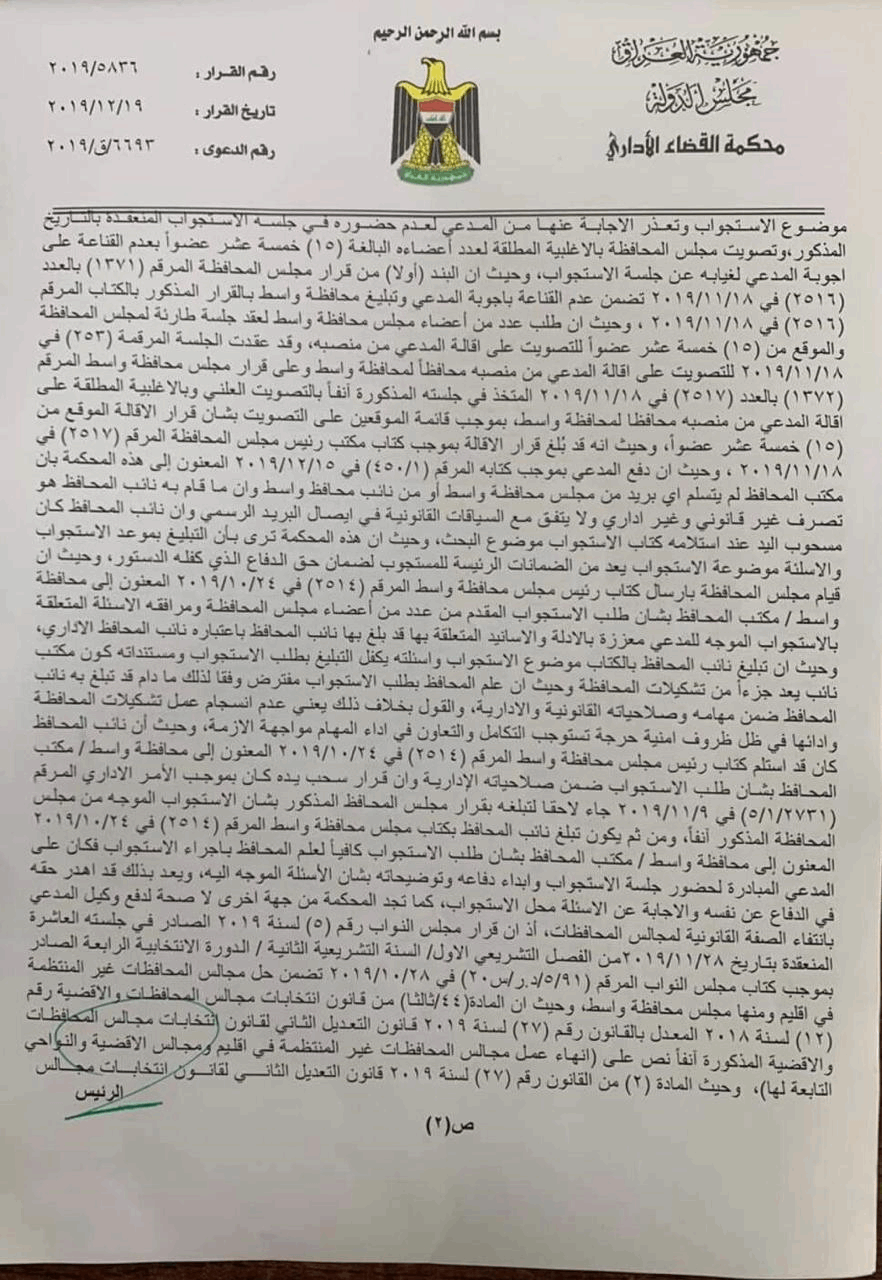 بسم الله الرحمن الرحيم
جمهورية العراق
مجلس الدولة
محكمة القضاء الأداري
رقم القرار : ٢٠١٩/٥٨٣٦
تاريخ القرار : ٢٠١٩/١٢/١٩
رقم الدعوى : ٦٦٩٣/ق/٢٠١٩
جمهورية العراق
موضوع الاستجواب وتعذر الاجابة عنها من المدعي لعدم حضوره في جلسه الاستجواب المنعقدة بالتاريخ
المذكور،وتصويت مجلس المحافظة بالاغلبية المطلقة لعدد أعضاءه البالغة (١٥) خمسة عشر عضواً بعدم القناعة على
اجوبة المدعي لغيابه عن جلسة الاستجواب، وحيث ان البند (أولا) من قرار مجلس المحافظة المرقم (١٣٧١) بالعدد
(٢٥١٦) في ٢٠١٩/١١/١٨ تضمن عدم القناعة باجوبة المدعي وتبليغ محافظة واسط بالقرار المذكور بالكتاب المرقم
(٢٥١٦) في ٢٠١٩/١١/١٨ ، وحيث ان طلب عدد من أعضاء مجلس محافظة واسط لعقد جلسة طارئة لمجلس المحافظة
والموقع من (١٥) خمسة عشر عضواً للتصويت على اقالة المدعي من منصبه، وقد عقدت الجلسة المرقمة (٢٥٣) في
٢٠١٩/١١/١٨ للتصويت على اقالة المدعي من منصبه محافظاً لمحافظة واسط وعلى قرار مجلس محافظة واسط المرقم
(١٣٧٢) بالعدد (٢٥١٧) في ٢٠١٩/١١/١٨ المتخذ في جلسته المذكورة أنفاً بالتصويت العلني وبالاغلبية المطلقة على
اقالة المدعي من منصبه محافظا لمحافظة واسط، بموجب قائمة الموقعين على التصويت بشان قرار الاقالة الموقع من
(١٥) خمسة عشر عضواً، وحيث انه قد بُلغ قرار الاقالة بموجب كتاب مكتب رئيس مجلس المحافظة المرقم (٢٥١٧) في
٢٠١٩/١١/١٨ ، وحيث ان دفع المدعي بموجب كتابه المرقم (٤٥٠/١) في ٢٠١٩/١٢/١٥ المعنون إلى هذه المحكمة بان
مكتب المحافظ لم يتسلم اي بريد من مجلس محافظة واسط أو من نائب محافظ واسط وان ما قام به نائب المحافظ هو
تصرف غير قانوني وغير اداري ولا يتفق مع السياقات القانونية في ايصال البريد الرسمي وان نائب المحافظ كان
مسحوب اليد عند استلامه كتاب الاستجواب موضوع البحث، وحيث ان هذه المحكمة ترى بأن التبليغ بموعد الاستجواب
والاسئلة موضوعة الاستجواب يعد من الضمانات الرئيسة للمستجوب لضمان حق الدفاع الذي كفله الدستور، وحيث ان
قيام مجلس المحافظة بارسال كتاب رئيس مجلس محافظة واسط المرقم (٢٥١٤) في ٢٠١٩/١٠/٢٤ المعنون إلى محافظة
واسط / مكتب المحافظ بشان طلب الاستجواب المقدم من عدد من أعضاء مجلس المحافظة ومرافقه الاسئلة المتعلقة
بالاستجواب الموجه للمدعي معززة بالادلة والاسانيد المتعلقة بها قد بلغ بها نائب المحافظ باعتباره نائب المحافظ الاداري،
وحيث ان تبليغ نائب المحافظ بالكتاب موضوع الاستجواب واسئلته يكفل التبليغ بطلب الاستجواب ومستنداته كون مكتب
نائب يعد جزءاً من تشكيلات المحافظة وحيث ان علم المحافظ بطلب الاستجواب مفترض وفقا لذلك ما دام قد تبلغ به نائب
المحافظ ضمن مهامه وصلاحياته القانونية والادارية، والقول بخلاف ذلك يعني عدم انسجام عمل تشكيلات المحافظة
وادائها في ظل ظروف امنية حرجة تستوجب التكامل والتعاون في اداء المهام مواجهة الازمة، وحيث أن نائب المحافظ
كان قد استلم كتاب رئيس مجلس محافظة واسط المرقم (٢٥١٤) في ٢٠١٩/١٠/٢٤ المعنون إلى محافظة واسط / مكتب
المحافظ بشان طلب الاستجواب ضمن صلاحياته الإدارية وان قرار سحب يده كان بموجب الأمر الاداري المرقم
(٥/١/٢٧٣١) في ٢٠١٩/١١/٩ جاء لاحقا لتبلغه بقرار مجلس المحافظ المذكور بشان الاستجواب الموجه من مجلس
المحافظة المذكور أنفاً، ومن ثم يكون تبلغ نائب المحافظ بكتاب مجلس محافظة واسط المرقم (٢٥١٤) في ٢٠١٩/١٠/٢٤
المعنون إلى محافظة واسط / مكتب المحافظ بشان طلب الاستجواب كافياً لعلم المحافظ باجراء الاستجواب فكان على
المدعي المبادرة لحضور جلسة الاستجواب وابداء دفاعه وتوضيحاته بشان الأسئلة الموجه اليه، ويعد بذلك قد اهدر حقه
في الدفاع عن نفسه والاجابة عن الاسئلة محل الاستجواب، كما تجد المحكمة من جهة اخرى لا صحة لدفع وكيل المدعي
بانتفاء الصفة القانونية لمجالس المحافظات، أذ ان قرار مجلس النواب رقم (٥) لسنة ٢٠١٩ الصادر في جلسته العاشرة
المنعقدة بتاريخ ٢٠١٩/١١/٢٨من الفصل التشريعي الاول/ السنة التشريعية الثانية / الدورة الانتخابية الرابعة الصادر
بموجب كتاب مجلس النواب المرقم (٥/٩١/د.ر/س٢٠) في ٢٠١٩/١٠/٢٨ تضمن حل مجالس المحافظات غير المنتظمة
في اقليم ومنها مجلس محافظة واسط، وحيث ان المادة(٤٤/ثالثا) من قانون انتخابات مجالس المحافظات والاقضية رقم
(١٢) لسنة ٢٠١٨ المعدل بالقانون رقم (٢٧) لسنة ٢٠١٩ قانون التعديل الثاني لقانون إنتخابات مجالس المحافظات
والاقضية المذكورة أنفاً نص على (انهاء عمل مجالس المحافظات غير المنتظمة في اقليم ومجالس الاقضية والنواحي
التابعة لها)، وحيث المادة (٢) من القانون رقم (٢٧) لسنة ٢٠١٩ قانون التعديل الثاني لقانون انتخابات مجالس
الرئيس
ص(٢)